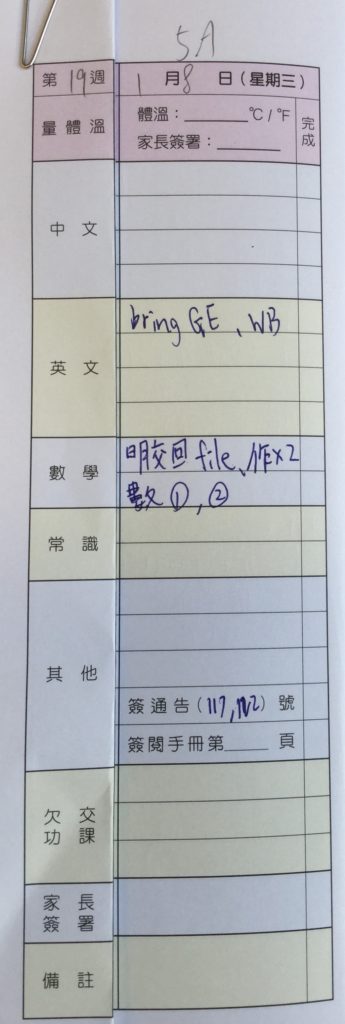 5A
第19週 1月8日(星期三)
量體溫 體溫：______℃/℉ 完成
家長簽署：______
中文
英文 bring GE、WB
數學 明交回 file、作x2
數①,②
常識
其他
簽通告(117,122)號
簽閱手冊第____頁
欠交功課
家長簽署
備註